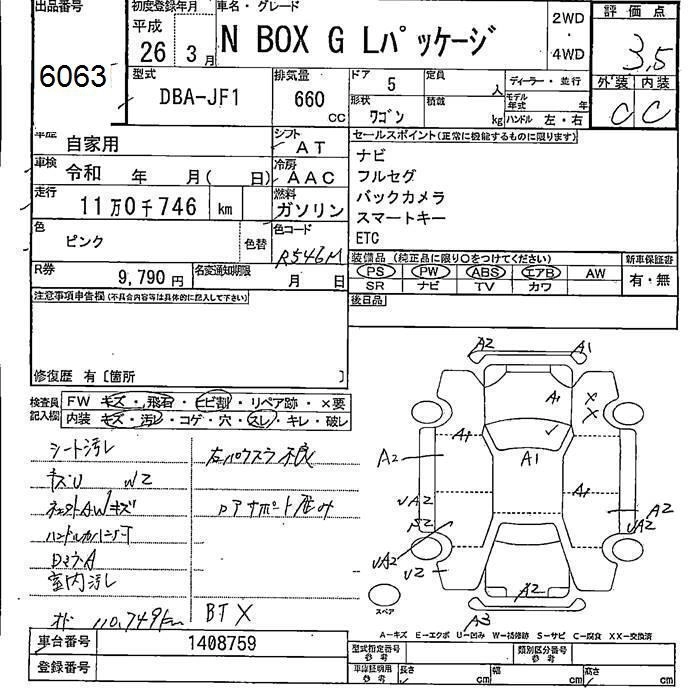 出品番号
6063
初度登録年月
平成
26 3月
車名・グレード
N BOX G Lパッケージ
2WD
・
4WD
評価点
3.5
外装 内装
C C
型式
DBA-JF1
排気量
660
cc
ドア
5
定員
人
形状
ワゴン
積載
kg
ディーラー・並行
モデル年式 年
ハンドル 左・右
車歴
自家用
シフト
AT
車検
令和 年 月( 日)
冷房
AAC
走行
11万0千746 km
燃料
ガソリン
色
ピンク
色替
色コード
R546M
R券
9,790円
名変通知期限
月 日
セールスポイント(正常に機能するものに限ります)
ナビ
フルセグ
バックカメラ
スマートキー
ETC
装備品 (純正品に限り○をつけてください)
PS PW ABS エアB AW
SR ナビ TV カワ
新車保証書
有・無
後日品
注意事項申告欄(不具合内容等は具体的に記入して下さい)
修復歴 有〔箇所 〕
検査員記入欄
FW キズ・飛石・ヒビ割・リペア跡・×要
内装 キズ・汚レ・コゲ・穴・スレ・キレ・破レ
シート汚レ
キズU W2
室内汚レ
左パワスラ不良
BT X
車台番号
1408759
登録番号
A2 A1
A1
X
X
A1
A1
A2
A1
VA2
A2
VA2
VA2
V2
A2
A3
スペア
A-キズ E-エクボ U-凹み W-補修跡 S-サビ C-腐食 XX-交換済
型式指定番号
参考
類別区分番号
参考
車庫証明用
参考
長さ cm
幅 cm
高さ cm